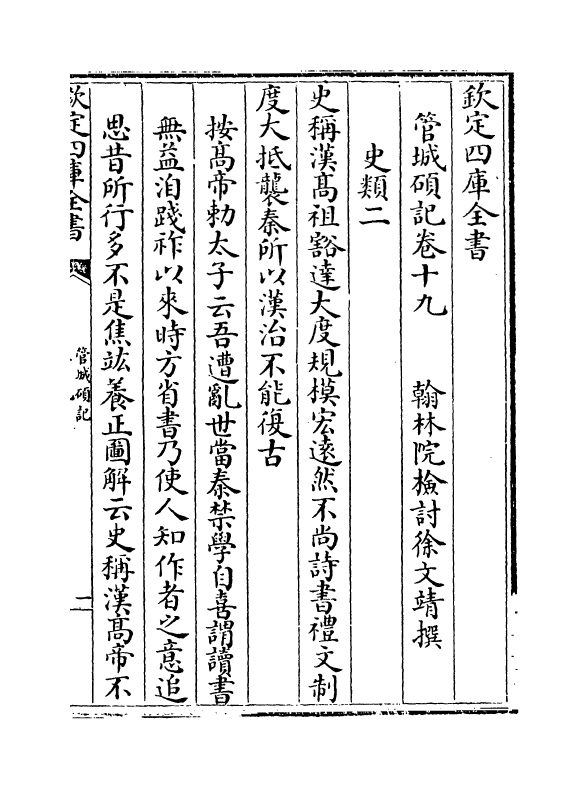 欽定四庫全書
管城碩記卷十九　　翰林院檢討徐文靖撰
史類二
史稱漢髙祖豁達大度規模宏逺然不尚詩書禮文制
度大抵襲秦所以漢治不能復古
按髙帝勅太子云吾遭亂世當秦禁學自喜謂讀書
無益洎踐祚以來時方省書乃使人知作者之意追
思昔所行多不是焦竑養正圖解云史稱漢髙帝不
欽定四庫全書
管城碩記
一